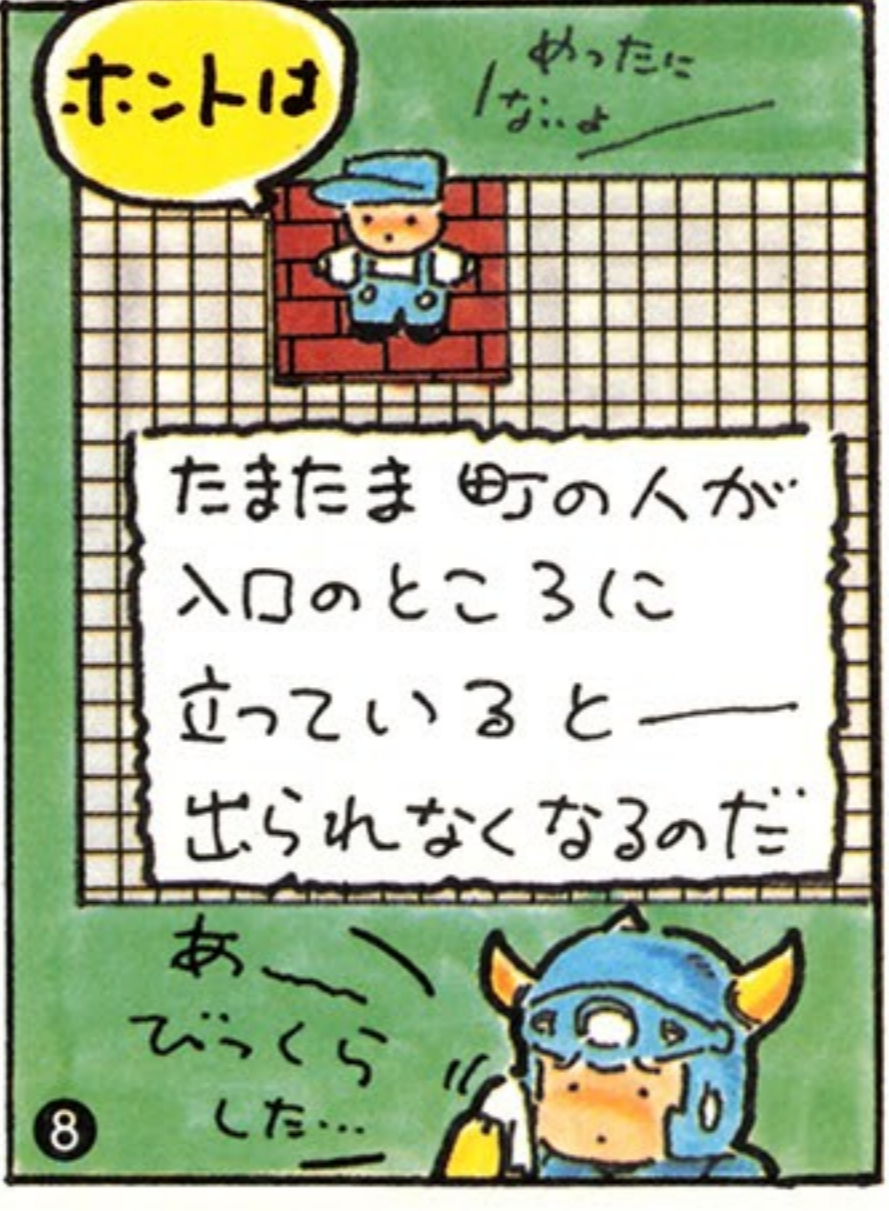 ホントは
めったに
ないよ
たまたま 町の人が
入口のところに
立っていると──
出られなくなるのだ
あ〜
びっくら
した…
8